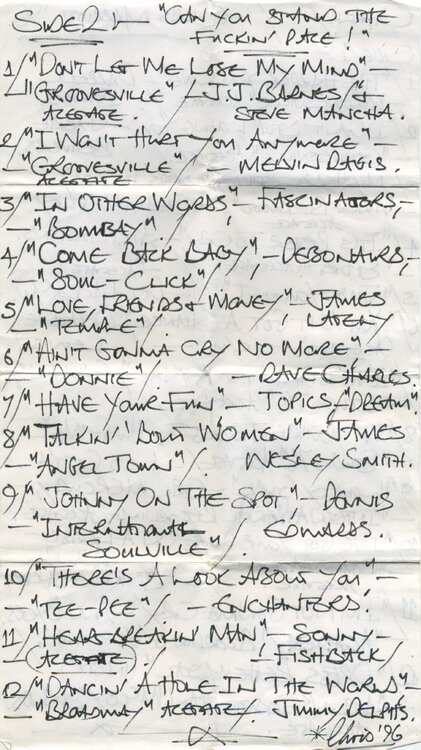 SIDE 2:- "CAN YOU STAND THE
FUCKIN' PACE!"
1/ "DON'T LET ME LOSE MY MIND"—
—"GROOVESVILLE"/—J.J. BARNES/&
ACETATE. STEVE MANCHA.
2/ "I WON'T HURT YOU ANYMORE"—
—"GROOVESVILLE"/—MELVIN DAVIS.
ACETATE
3/ "IN OTHER WORDS"—FASCINATORS,—
—"BOMBAY"/
4/ "COME BACK BABY",—DEBONAURS,—
—"SOUL-CLICK"/
5/ "LOVE, FRIENDS & MONEY"—JAMES
—"TEMPLE"/ LATELY
6/ "AIN'T GONNA CRY NO MORE"—
—"DONNIE"/—DAVE CHARLES.
7/ "HAVE YOUR FUN"—TOPICS—"DREAM".
8/ "TALKIN' 'BOUT WOMEN"—JAMES
—"ANGEL TOWN"/ WESLEY SMITH.
9/ "JOHNNY ON THE SPOT"—DENNIS
—"INTERNATIONAL EDWARDS.
SOULVILLE"/
10/ "THERE'S A LOOK ABOUT YOU"—
—"TEE-PEE"/—ENCHANTERS.
11/ "HEARTBREAKIN' MAN"—SONNY—
—(ACETATE)./ FISHBACK/
12/ "DANCIN' A HOLE IN THE WORLD"—
—"BROADWAY" ACETATE/ JIMMY DELPHS.
*Chris '96